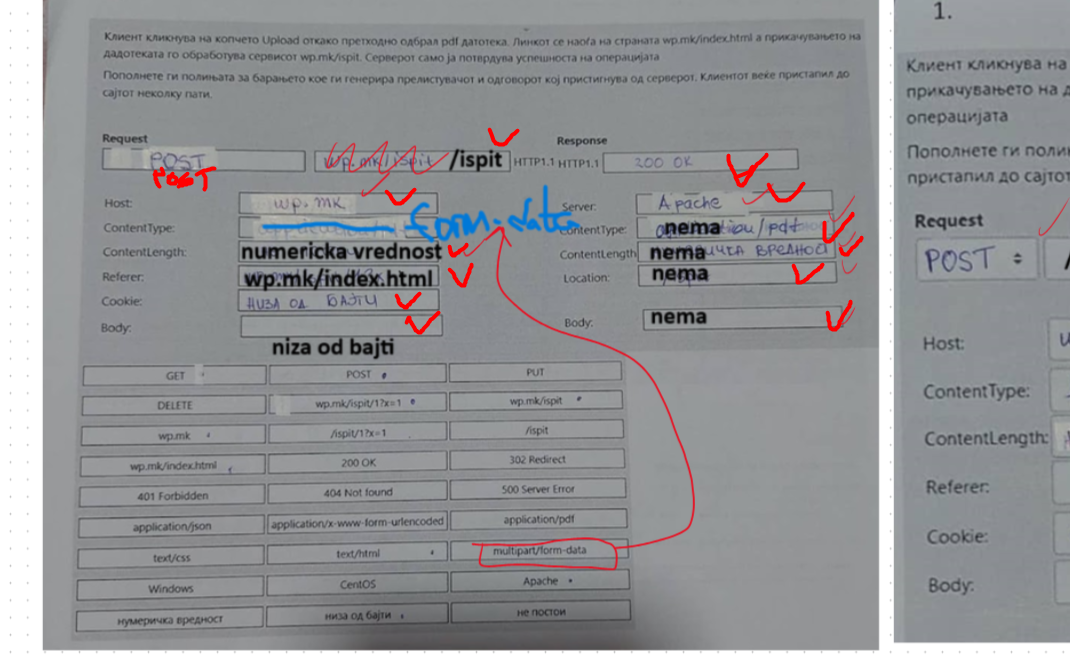 Клиент кликнува на копчето Upload откако претходно одбрал pdf датотека. Линкот се наоѓа на страната wp.mk/index.html а прикачувањето на
дадотеката го обработува сервисот wp.mk/ispit. Серверот само ја потврдува успешноста на операцијата
Пополнете ги полињата за барањето кое ги генерира прелистувачот и одговорот кој пристигнува од серверот. Клиентот веќе пристапил до
сајтот неколку пати.
Request
POST
POST
wp.mk/ispit /ispit HTTP1.1
Host: wp.mk
ContentType: form-data
ContentLength: numericka vrednost
Referer: wp.mk/index.html
Cookie: НИЗА ОД БАЈТИ
Body:
niza od bajti
Response
HTTP1.1 200 OK
Server: Apache
ContentType: nema
ContentLength nema
Location: nema
Body: nema
GET POST PUT
DELETE wp.mk/ispit/1?x=1 wp.mk/ispit
wp.mk /ispit/1?x=1 /ispit
wp.mk/index.html 200 OK 302 Redirect
401 Forbidden 404 Not found 500 Server Error
application/json application/x-www-form-urlencoded application/pdf
text/css text/html multipart/form-data
Windows CentOS Apache
нумеричка вредност низа од бајти не постои
1.
Клиент кликнува на
прикачувањето на
операцијата
Пополнете ги
пристапил до сајтот
Request
POST
Host:
ContentType:
ContentLength:
Referer:
Cookie:
Body: